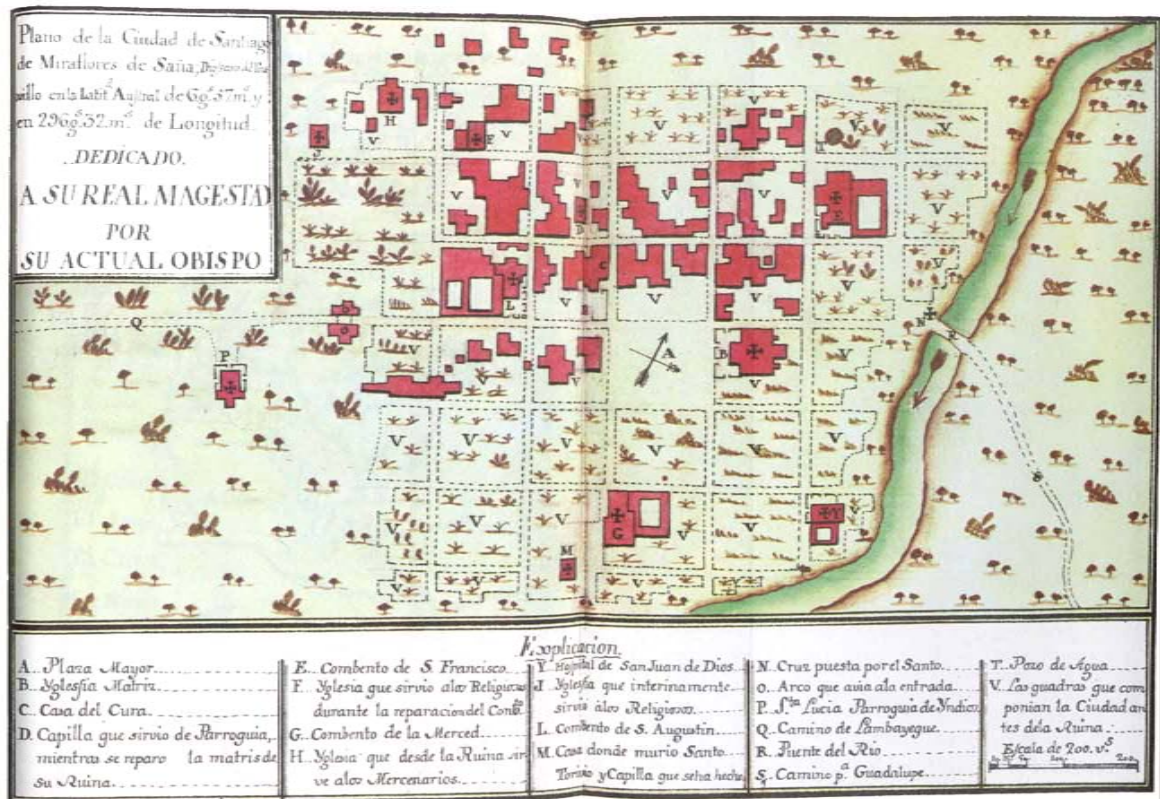 Plano de la Ciudad de Santiag
de Miraflores de Saña,
en la Latit.ᵈ Austral de 6gˢ.37mˢ. y
en 296gˢ.32.mˢ. de Longitud.
DEDICADO.
A SU REAL MAGESTAD
POR
SU ACTUAL OBISPO
Explicacion.
A.. Plaza Mayor
B.. Yglessia Matriz
C.. Casa del Cura
D. Capilla que sirvio de Parroguia,
mientras se reparo la matris de
su Ruina
E.. Combento de S. Francisco
F. Yglesia que sirvio alos Religiosos
durante la reparacion del Combᵗᵒ
G.. Combento de la Merced
H.. Yglesia que desde la Ruina sir
ve alos Mercenarios.
Y Hospital de San Juan de Dios
J Yglesia que interinamente
sirvio àlos Religiosos
L. Combento de S. Augustin
M. Casa donde murio Santo
Torivio y Capilla que seha hecho
N.. Cruz puesta por el Santo
O.. Arco que avia ala entrada
P.. Sᵗᵃ Lucia Parroguia de Yndios
Q.. Camino de Lambayeque
R.. Puente del Rio
S. Camino pᵃ Guadalupe
T.. Pozo de Agua
V. Las quadras que com
ponian la Ciudad an
tes dela Ruina
Escala de 200. vˢ
200